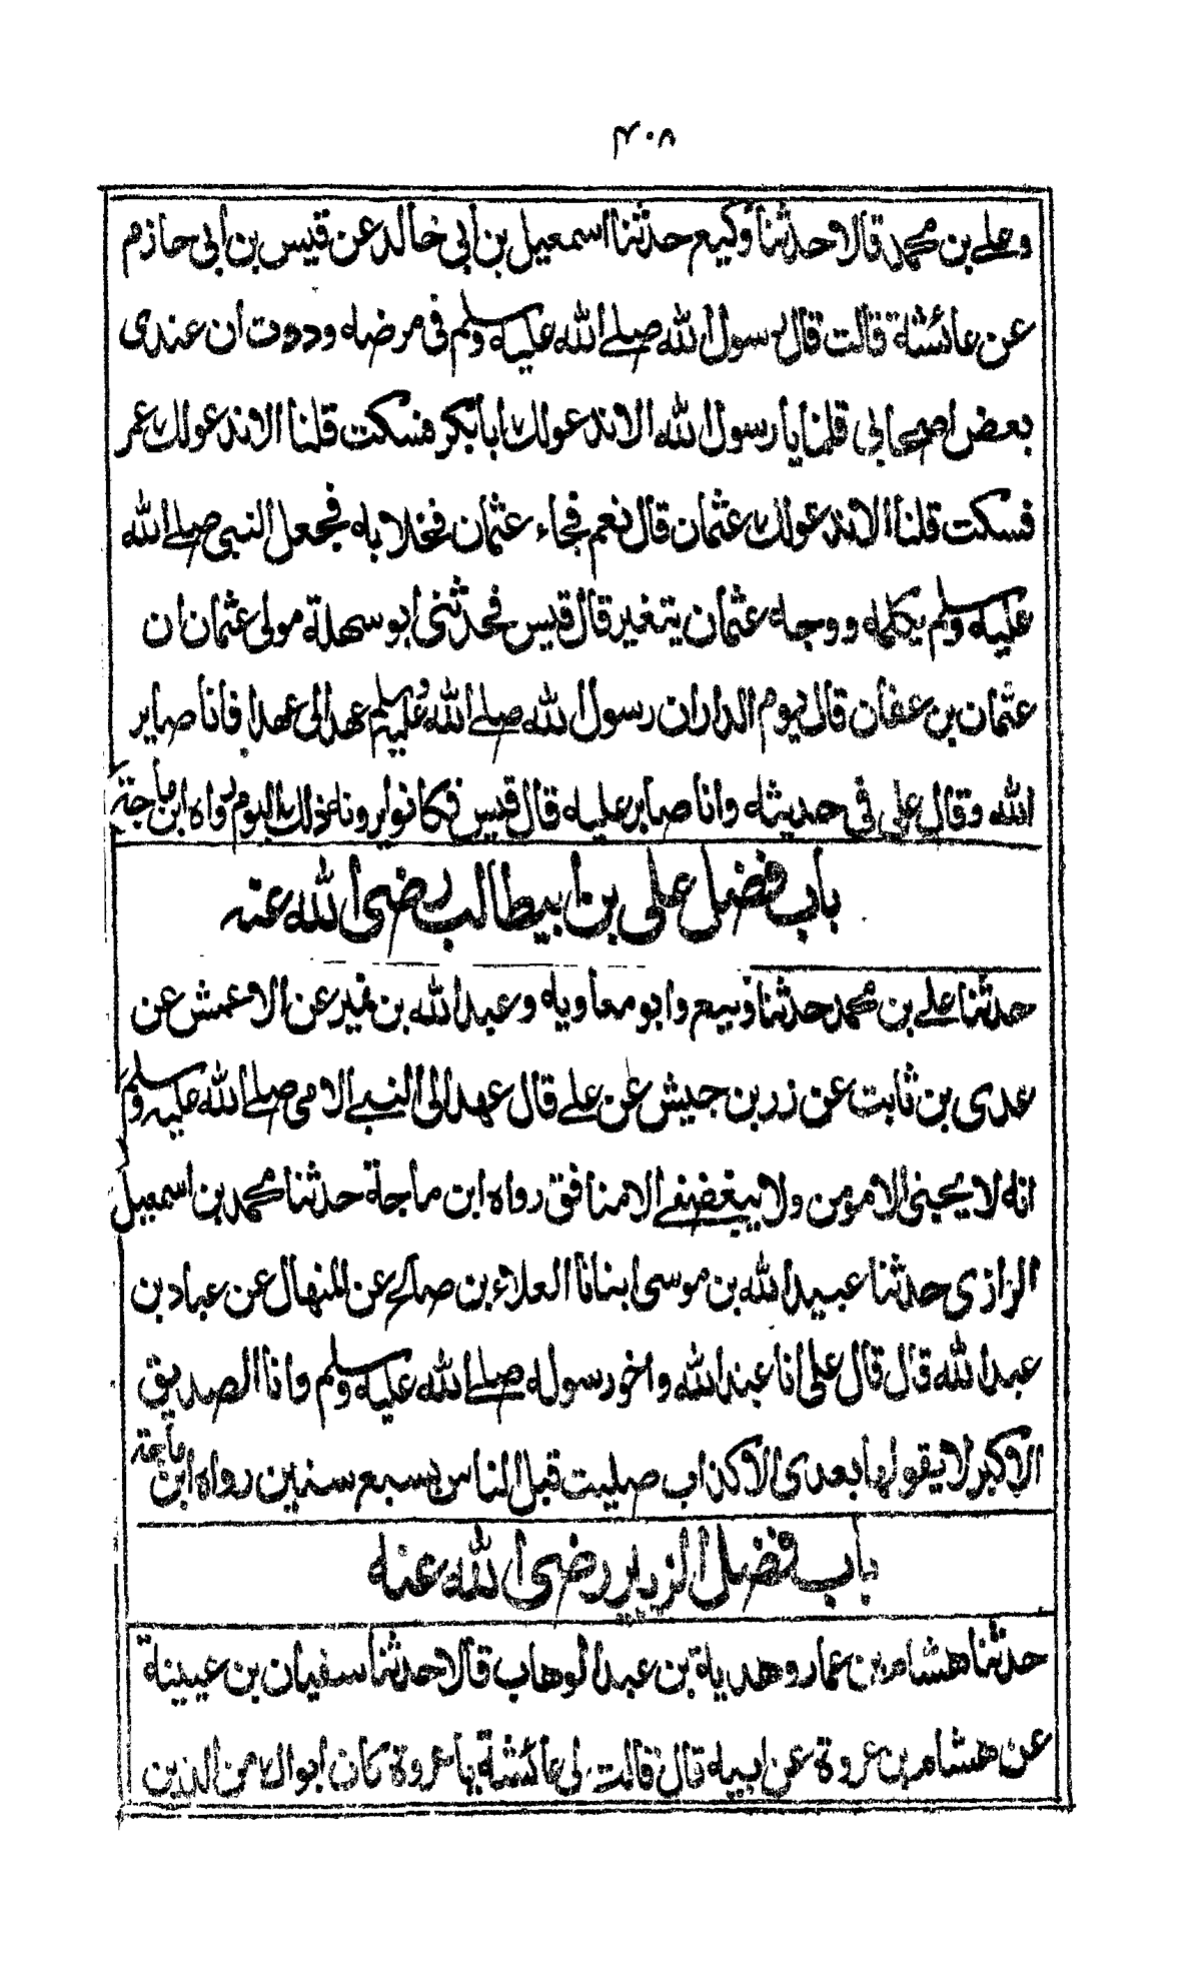 ٣٠٨
وعلے بن محمد قالا حدثنا وكيع حدثنا اسمعيل بن ابي خالد عن قيس بن ابي حازم
عن عائشة قالت قال رسول الله صلے الله عليه وسلم فى مرضه وددت ان عندى
بعض اصحابي قلنا يا رسول الله الا ندعو لك ابا بكر فسكت قلنا الا ندعو لك عمر
فسكت قلنا الا ندعو لك عثمان قال نعم فجاء عثمان فخلا به فجعل النبي صلے الله
عليه وسلم يكلمه ووجه عثمان يتغير قال قيس فحدثنى ابو سهلة مولى عثمان ان
عثمان بن عفان قال يوم الدار ان رسول الله صلے الله عليه وسلم عهد الى عهدا فانا صاير
الله وقال على فى حديثه وانا صابر عليه قال قيس فكانوا يرونه ذلك اليوم رواه ابن ماجة
باب فضل على بن ابيطالب رضى الله عنه
حدثنا علے بن محمد حدثنا وكيع وابو معاويه وعبد الله بن نمير عن الاعمش عن
عدى بن ثابت عن زر بن حبيش عن علے قال عهد الى النبے الامى صلے الله عليه وسلم
انه لا يحبنى الا مومن ولا يبغضنے الا منافق رواه ابن ماجة حدثنا محمد بن اسمعيل
الرازى حدثنا عبيد الله بن موسى ابنانا العلاء بن صالح عن المنهال عن عباد بن
عبد الله قال قال على انا عبد الله واخو رسوله صلے الله عليه وسلم وانا الصديق
الاكبر لا يقولها بعدى الا كذاب صليت قبل الناس بسبع سنين رواه ابن ماجة
باب فضل الزبير رضى الله عنه
حدثنا هشام بن عمار وهدية بن عبد الوهاب قالا حدثنا سفيان بن عيينة
عن هشام بن عروة عن ابيه قال قالت لى عائشة يا عروة كان ابواك من الذين